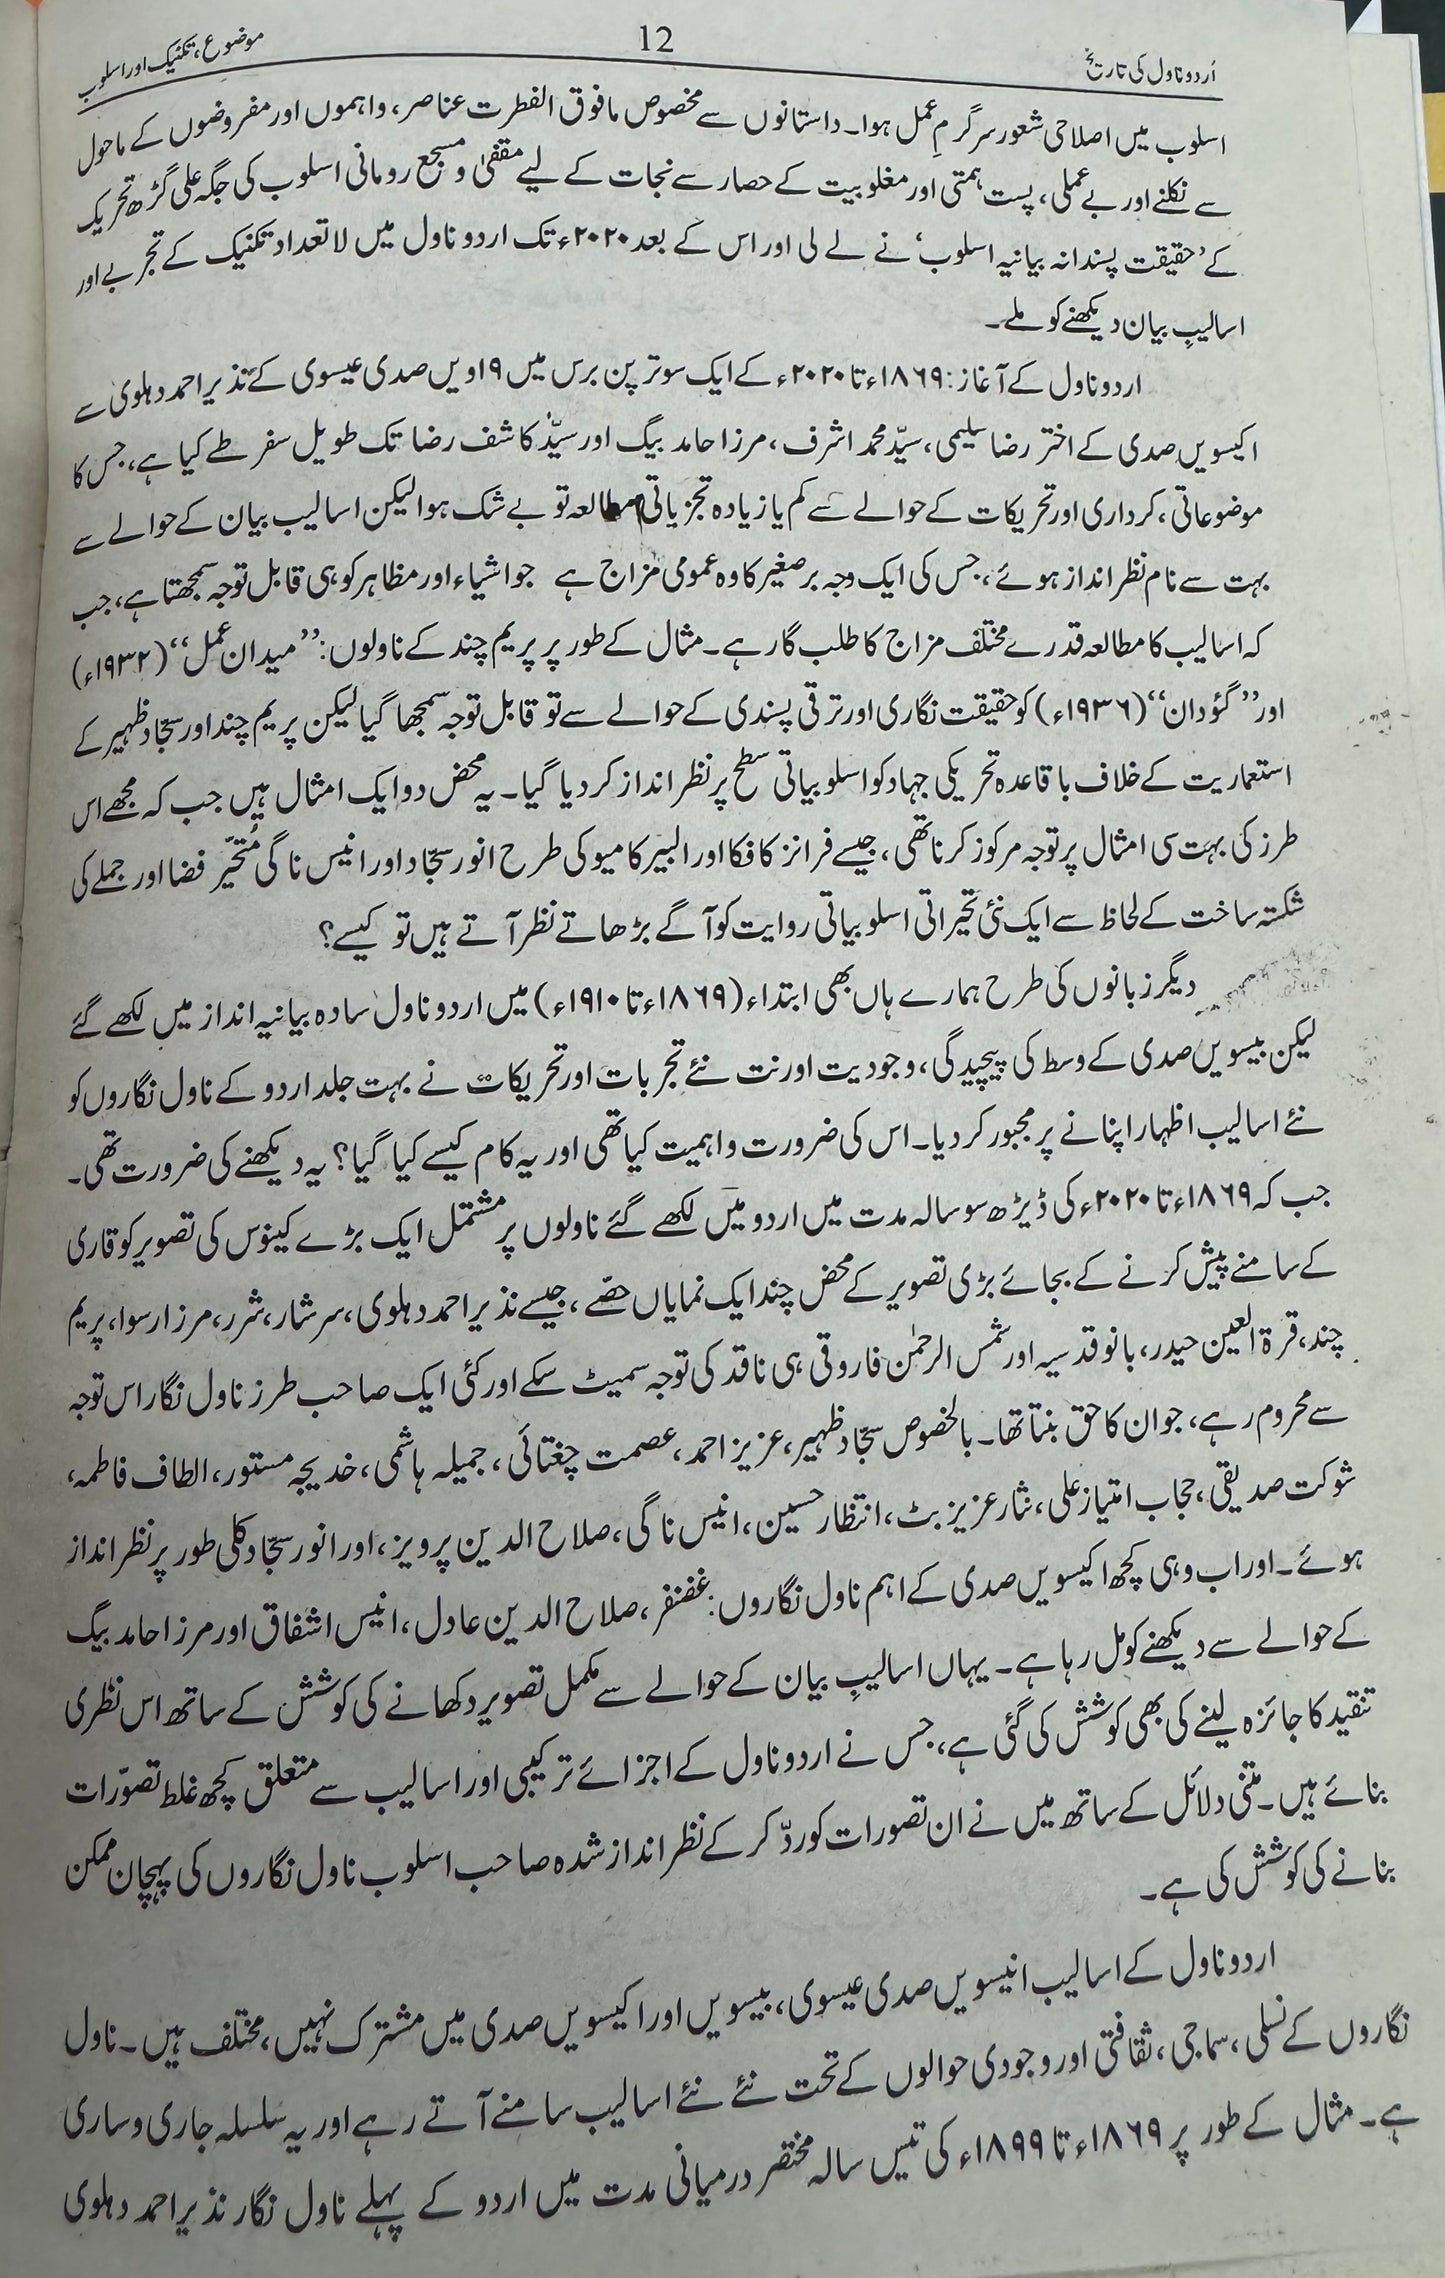 اُردو ناول کی تاریخ
12
موضوع، تکنیک اور اسلوب
اسلوب میں اصلاحی شعور سرگرمِ عمل ہوا۔ داستانوں سے مخصوص مافوق الفطرت عناصر، واہموں اور مفروضوں کے ماحول
سے نکلنے اور بے عملی، پست ہمتی اور مغلوبیت کے حصار سے نجات کے لیے مقفیٰ و مسجع رومانی اسلوب کی جگہ علی گڑھ تحریک
کے ’حقیقت پسندانہ بیانیہ اسلوب‘ نے لے لی اور اس کے بعد ۲۰۲۰ء تک اردو ناول میں لاتعداد تکنیک کے تجربے اور
اسالیبِ بیان دیکھنے کو ملے۔
اردو ناول کے آغاز: ۱۸۶۹ء تا ۲۰۲۰ء کے ایک سو ترپن برس میں ۱۹ویں صدی عیسوی کے نذیر احمد دہلوی سے
اکیسویں صدی کے اختر رضا سلیمی، سیّد محمد اشرف، مرزا حامد بیگ اور سیّد کاشف رضا تک طویل سفر طے کیا ہے، جس کا
موضوعاتی، کرداری اور تحریکات کے حوالے سے کم یا زیادہ تجزیاتی مطالعہ تو بے شک ہوا لیکن اسالیب بیان کے حوالے سے
بہت سے نام نظر انداز ہوئے، جس کی ایک وجہ برصغیر کا وہ عمومی مزاج ہے جو اشیاء اور مظاہر کو ہی قابل توجہ سمجھتا ہے، جب
کہ اسالیب کا مطالعہ قدرے مختلف مزاج کا طلب گار ہے۔ مثال کے طور پر پریم چند کے ناولوں: ’’میدان عمل‘‘ (۱۹۳۲ء)
اور ’’گئودان‘‘ (۱۹۳۶ء) کو حقیقت نگاری اور ترقی پسندی کے حوالے سے تو قابل توجہ سمجھا گیا لیکن پریم چند اور سجّاد ظہیر کے
استعماریت کے خلاف باقاعدہ تحریکی جہاد کو اسلوبیاتی سطح پر نظر انداز کر دیا گیا۔ یہ محض دو ایک امثال ہیں جب کہ مجھے اس
طرز کی بہت سی امثال پر توجہ مرکوز کرنا تھی، جیسے فرانز کافکا اور البیر کامیو کی طرح انور سجّاد اور انیس ناگی مُتحیّر فضا اور جملے کی
شکستہ ساخت کے لحاظ سے ایک نئی تحیراتی اسلوبیاتی روایت کو آگے بڑھاتے نظر آتے ہیں تو کیسے؟
دیگر زبانوں کی طرح ہمارے ہاں بھی ابتداء (۱۸۶۹ء تا ۱۹۱۰ء) میں اردو ناول سادہ بیانیہ انداز میں لکھے گئے
لیکن بیسویں صدی کے وسط کی پیچیدگی، وجودیت اور نت نئے تجربات اور تحریکات نے بہت جلد اردو کے ناول نگاروں کو
نئے اسالیب اظہار اپنانے پر مجبور کر دیا۔ اس کی ضرورت و اہمیت کیا تھی اور یہ کام کیسے کیا گیا؟ یہ دیکھنے کی ضرورت تھی۔
جب کہ ۱۸۶۹ء تا ۲۰۲۰ء کی ڈیڑھ سو سالہ مدت میں اردو میں لکھے گئے ناولوں پر مشتمل ایک بڑے کینوس کی تصویر کو قاری
کے سامنے پیش کرنے کے بجائے بڑی تصویر کے محض چند ایک نمایاں حصّے، جیسے نذیر احمد دہلوی، سرشار، شرر، مرزا رسوا، پریم
چند، قرۃ العین حیدر، بانو قدسیہ اور شمس الرحمٰن فاروقی ہی ناقد کی توجہ سمیٹ سکے اور کئی ایک صاحب طرز ناول نگار اس توجہ
سے محروم رہے، جو ان کا حق بنتا تھا۔ بالخصوص سجّاد ظہیر، عزیز احمد، عصمت چغتائی، جمیلہ ہاشمی، خدیجہ مستور، الطاف فاطمہ،
شوکت صدیقی، حجاب امتیاز علی، نثار عزیز بٹ، انتظار حسین، انیس ناگی، صلاح الدین پرویز، اور انور سجّاد کلی طور پر نظر انداز
ہوئے۔ اور اب وہی کچھ اکیسویں صدی کے اہم ناول نگاروں: غضنفر، صلاح الدین عادل، انیس اشفاق اور مرزا حامد بیگ
کے حوالے سے دیکھنے کو مل رہا ہے۔ یہاں اسالیبِ بیان کے حوالے سے مکمل تصویر دکھانے کی کوشش کے ساتھ اس نظری
تنقید کا جائزہ لینے کی بھی کوشش کی گئی ہے، جس نے اردو ناول کے اجزائے ترکیبی اور اسالیب سے متعلق کچھ غلط تصوّرات
بنائے ہیں۔ متنی دلائل کے ساتھ میں نے ان تصورات کو ردّ کر کے نظر انداز شدہ صاحب اسلوب ناول نگاروں کی پہچان ممکن
بنانے کی کوشش کی ہے۔
اردو ناول کے اسالیب انیسویں صدی عیسوی، بیسویں اور اکیسویں صدی میں مشترک نہیں، مختلف ہیں۔ ناول
نگاروں کے نسلی، سماجی، ثقافتی اور وجودی حوالوں کے تحت نئے نئے اسالیب سامنے آتے رہے اور یہ سلسلہ جاری و ساری
ہے۔ مثال کے طور پر ۱۸۶۹ء تا ۱۸۹۹ء کی تیس سالہ مختصر درمیانی مدت میں اردو کے پہلے ناول نگار نذیر احمد دہلوی